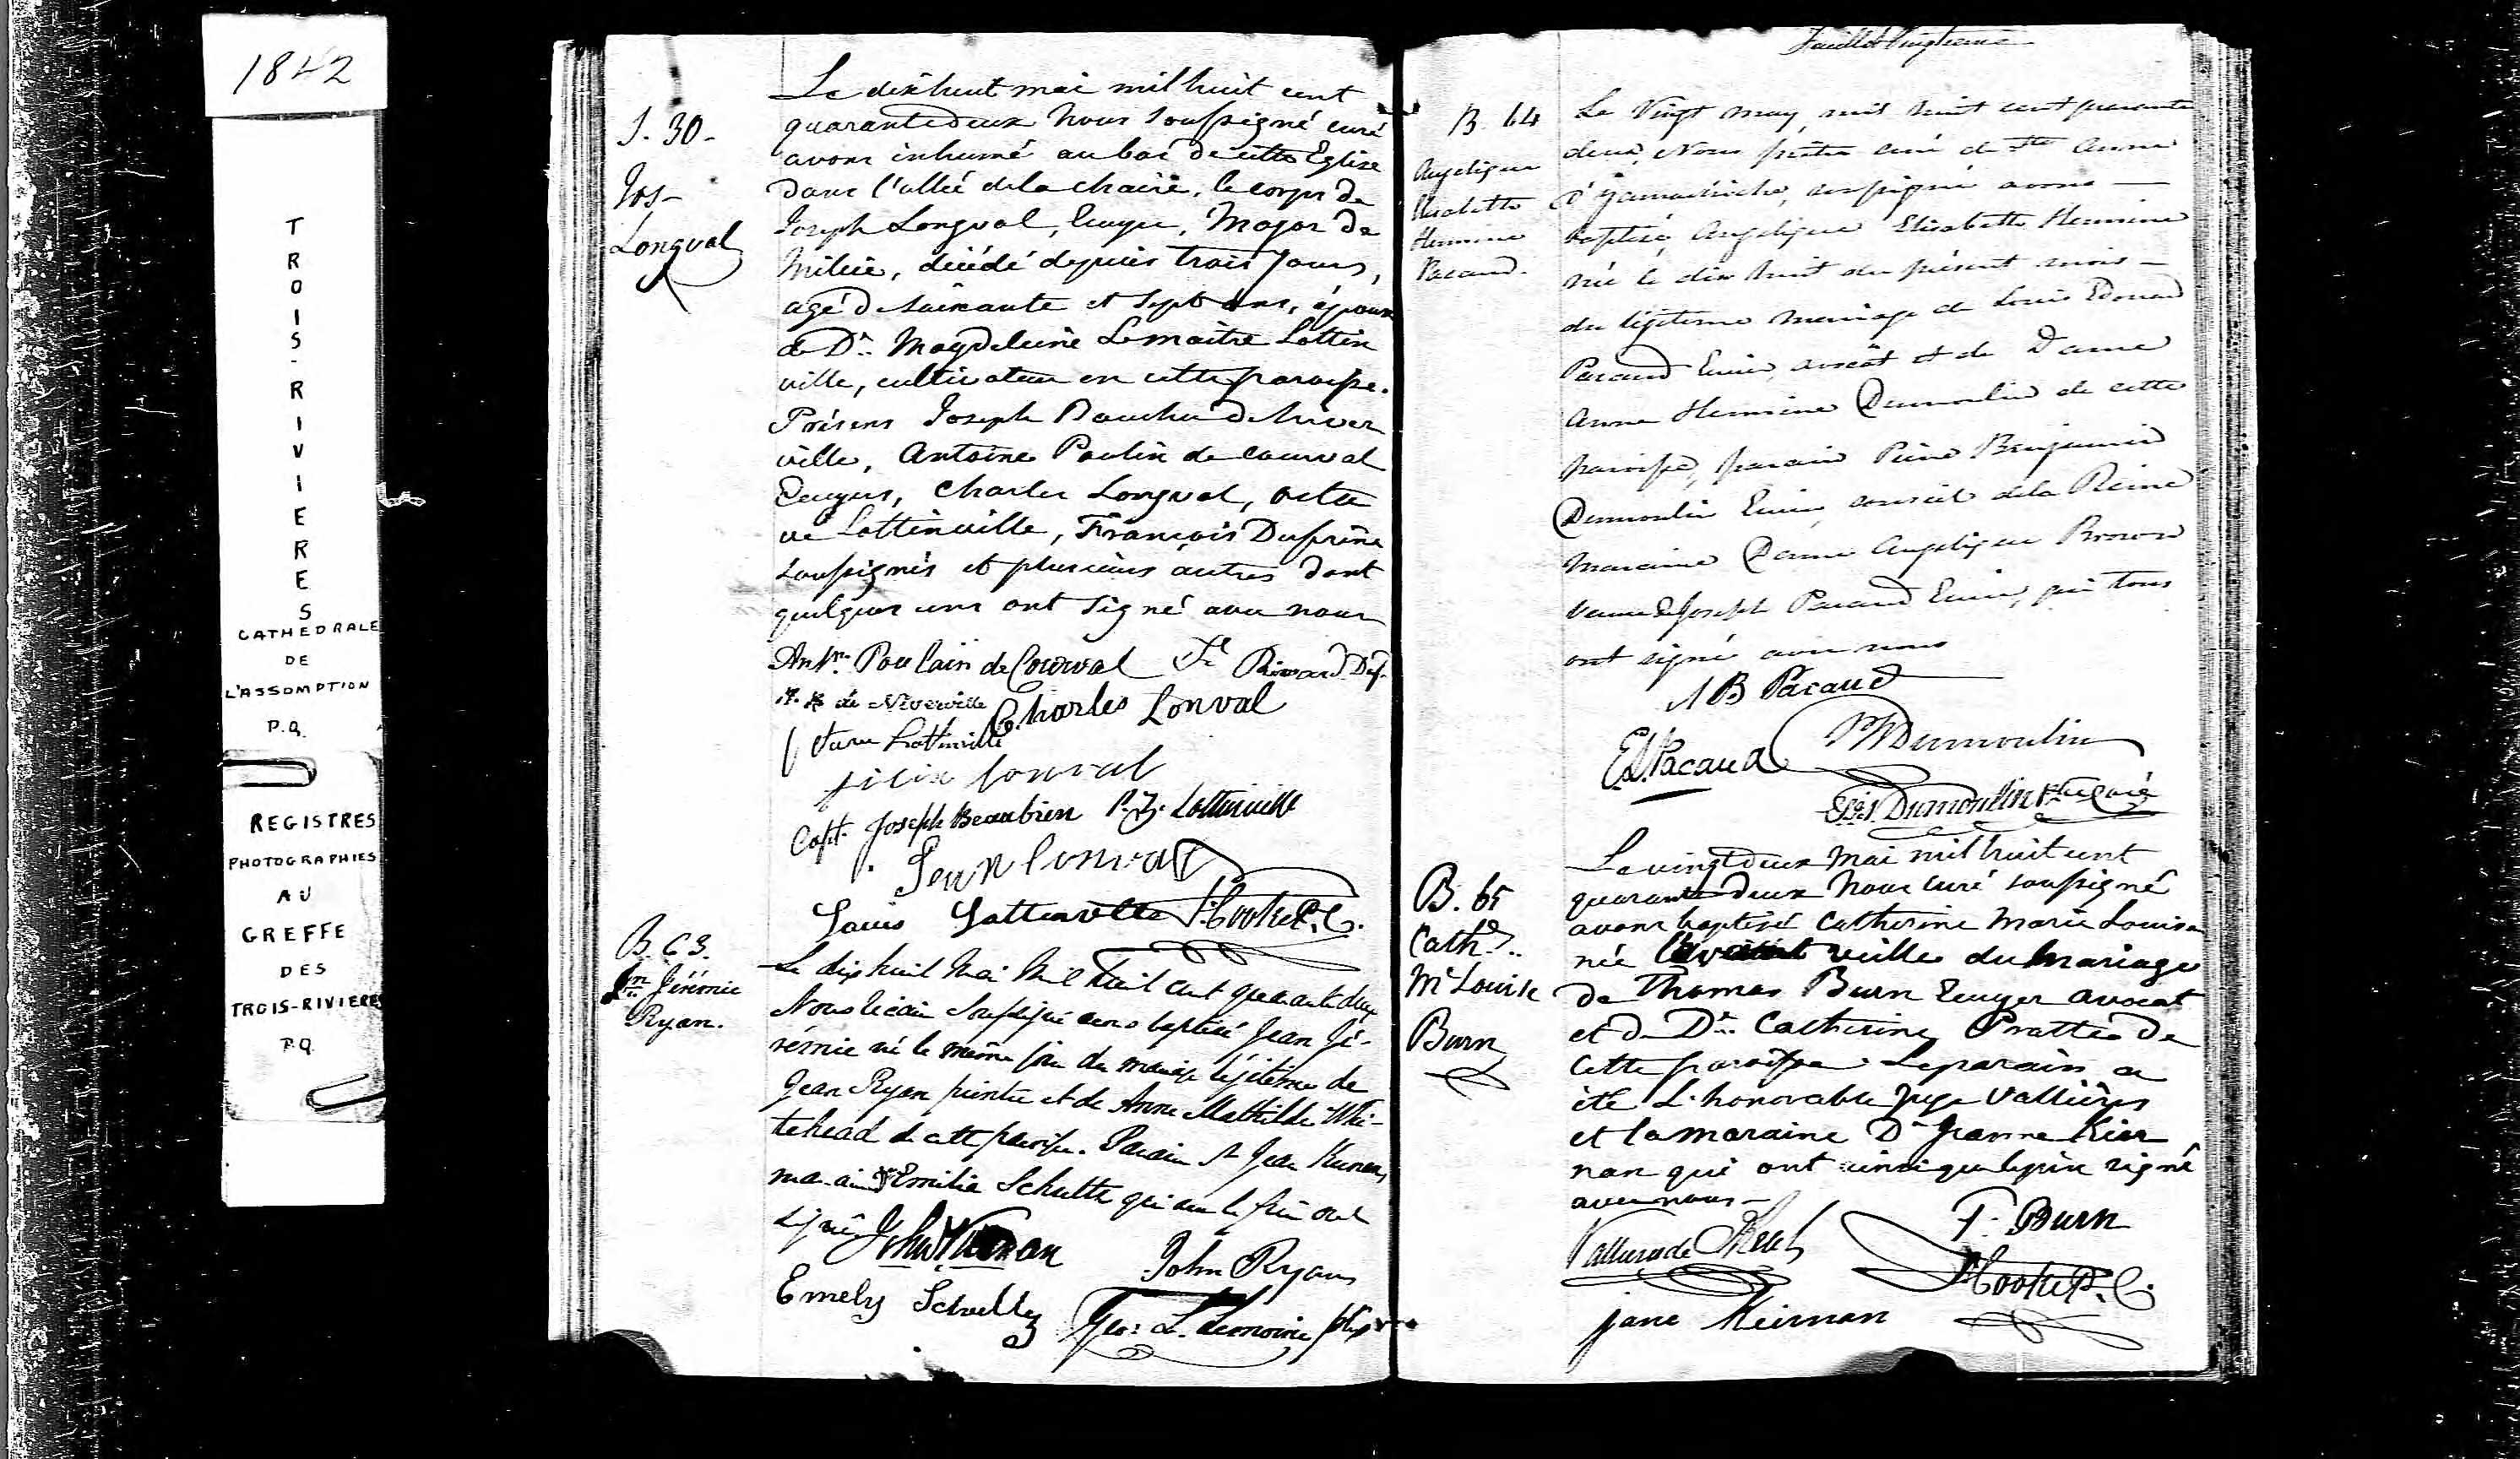 1842
TROIS-RIVIERES
CATHEDRALE
DE
L'ASSOMPTION
P.Q.
REGISTRES
PHOTOGRAPHIES
AU
GREFFE
DES
TROIS-RIVIERES
P.Q.
S. 30-
Jos-
Longval
Le dixhuit mai mil huit cent
quarantedeux nous soussigné curé
avons inhumé au bas de cette Eglise
dans l'allée de la chaire, le corps de
Joseph Longval, Ecuyer, Major de
Milice, décédé depuis trois jours,
agé de soixante et sept ans, époux
de De. Magdeleine Lemaitre Lottin
ville, cultivateur en cette paroisse.
Présens Joseph Boucher de Niver
ville, Antoine Poulin de Courval
Ecuyers, Charles Longval, Octa
ve Lottinville, François Dufrêne
soussignés et plusieurs autres dont
quelques uns ont signé avec nous
Ante. Poulain de Courval Fs Rivard Duf.
de Niverville Charles Lonval
Lottinville
lonval
Capt. Joseph Beaubien P. Z. Lottinville
Jean lonval
Louis Lottinville T. Cooke P. C.
B. 63.
Jn Jérémie
Ryan.
Le dix huit Mai Mil huit cent quarante deux
Nous vicaire soussigné avons baptisé Jean Jé-
rémie né le même jour du mariage légitime de
Jean Ryan peintre et de Anne Mathilde Whi-
tehead de cette paroisse. Parain Jean Kiernan,
maraine Emilie Schulte qui avec le père ont
signé John Kiernan
John Ryan
Emely Schulte
Geo: L. Lemoine ptre
Feuillet Vingtieme
B. 64
Angelique
Elisabette
Hermine
Pacaud.
Le Vingt may, mil huit cent quarante
deux, Nous prêtre curé de Ste Anne
d'Yamachiche, soussigné avons
baptisé Angelique Elisabette Hermine
née le dix huit du présent mois
du légitime mariage de Louis Edouard
Pacaud Ecuier, avocat et de Dame
Anne Hermine Dumoulin de cette
paroisse, parain Pierre Benjamin
Dumoulin Ecuier, conseil de la Reine
maraine Dame Angelique Brown
veuve de Joseph Pacaud Ecuier, qui tous
ont signé avec nous
AB Pacaud
Ed. Pacaud PB Dumoulin
Dumoulin Ptre Curé
B. 65
Cathe..
Me Louise
Burn
Le vingtdeux Mai mil huit cent
quarante deux Nous curé soussigné
avons baptisé Catherine Marie Louise
née veille du Mariage
de Thomas Burn Ecuyer avocat
et de De. Catherine Pratte de
cette paroisse Le parain a
été L'honorable Juge Vallières
et la maraine De Jeanne Kier
nan qui ont ainsi que le père signé
avec nous-
Vallieres de St Real
T. Burn
T. Cooke P. C.
jane Keirnan